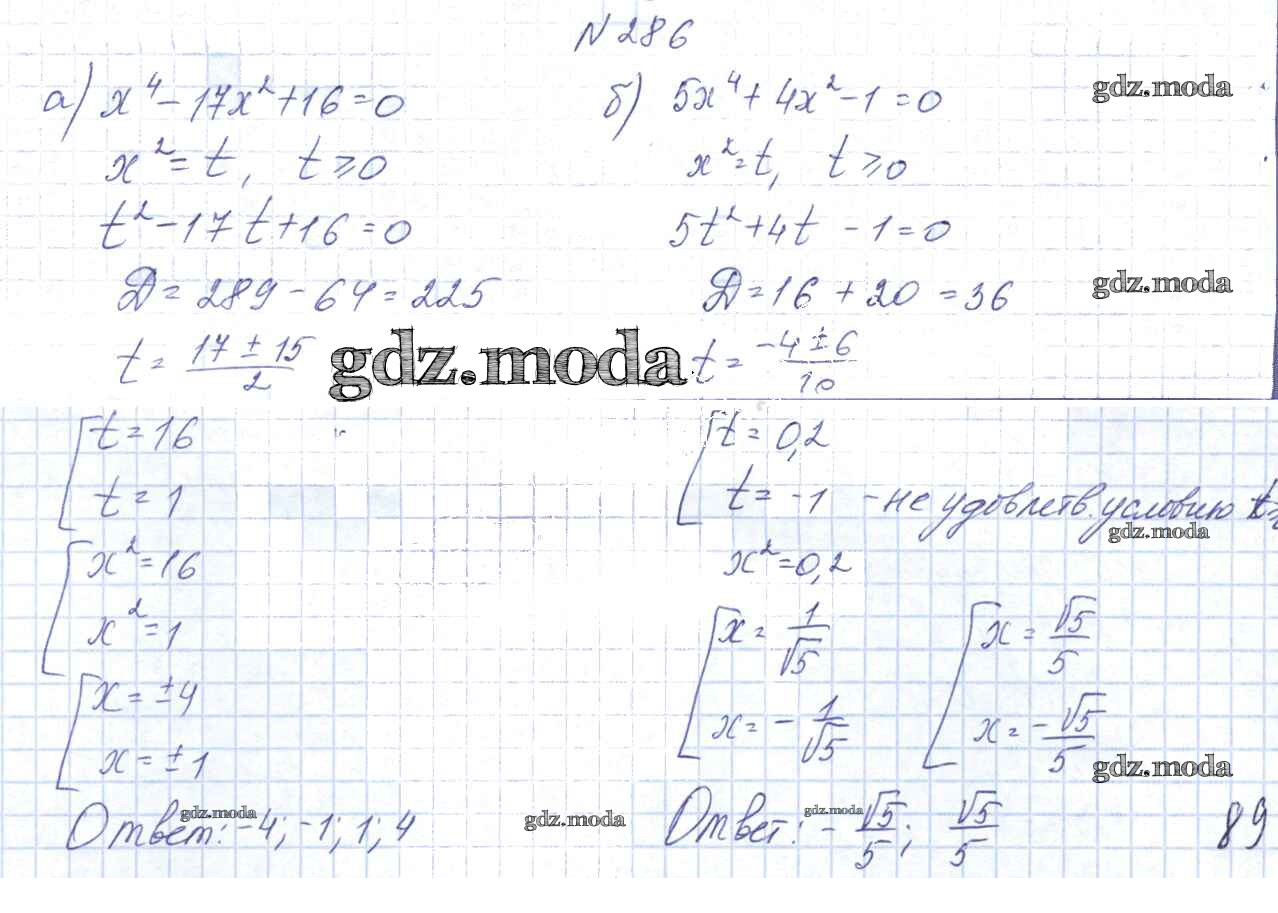 N 286
а) x⁴ - 17x² + 16 = 0
x² = t, t ⩾ 0
t² - 17t + 16 = 0
D = 289 - 64 = 225
t = (17 ± 15)/2
[ t = 16
t = 1
[ x² = 16
x² = 1
[ x = ±4
x = ±1
Ответ: -4; -1; 1; 4
б) 5x⁴ + 4x² - 1 = 0
x² = t, t ⩾ 0
5t² + 4t - 1 = 0
D = 16 + 20 = 36
t = (-4 ± 6)/10
[ t = 0,2
t = -1 - не удовлетв. условию t ⩾
x² = 0,2
[ x = 1/√5 [ x = √5/5
x = - 1/√5 x = - √5/5
Ответ: - √5/5; √5/5
89
gdz.moda
gdz.moda
gdz.moda
gdz.moda
gdz.moda
gdz.moda
gdz.moda
gdz.moda